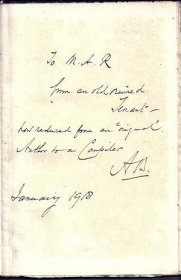 To M.A.R
from an old ruined
Tenant –
now reduced from an "original"
Author to a Compiler
AB.
January 1918